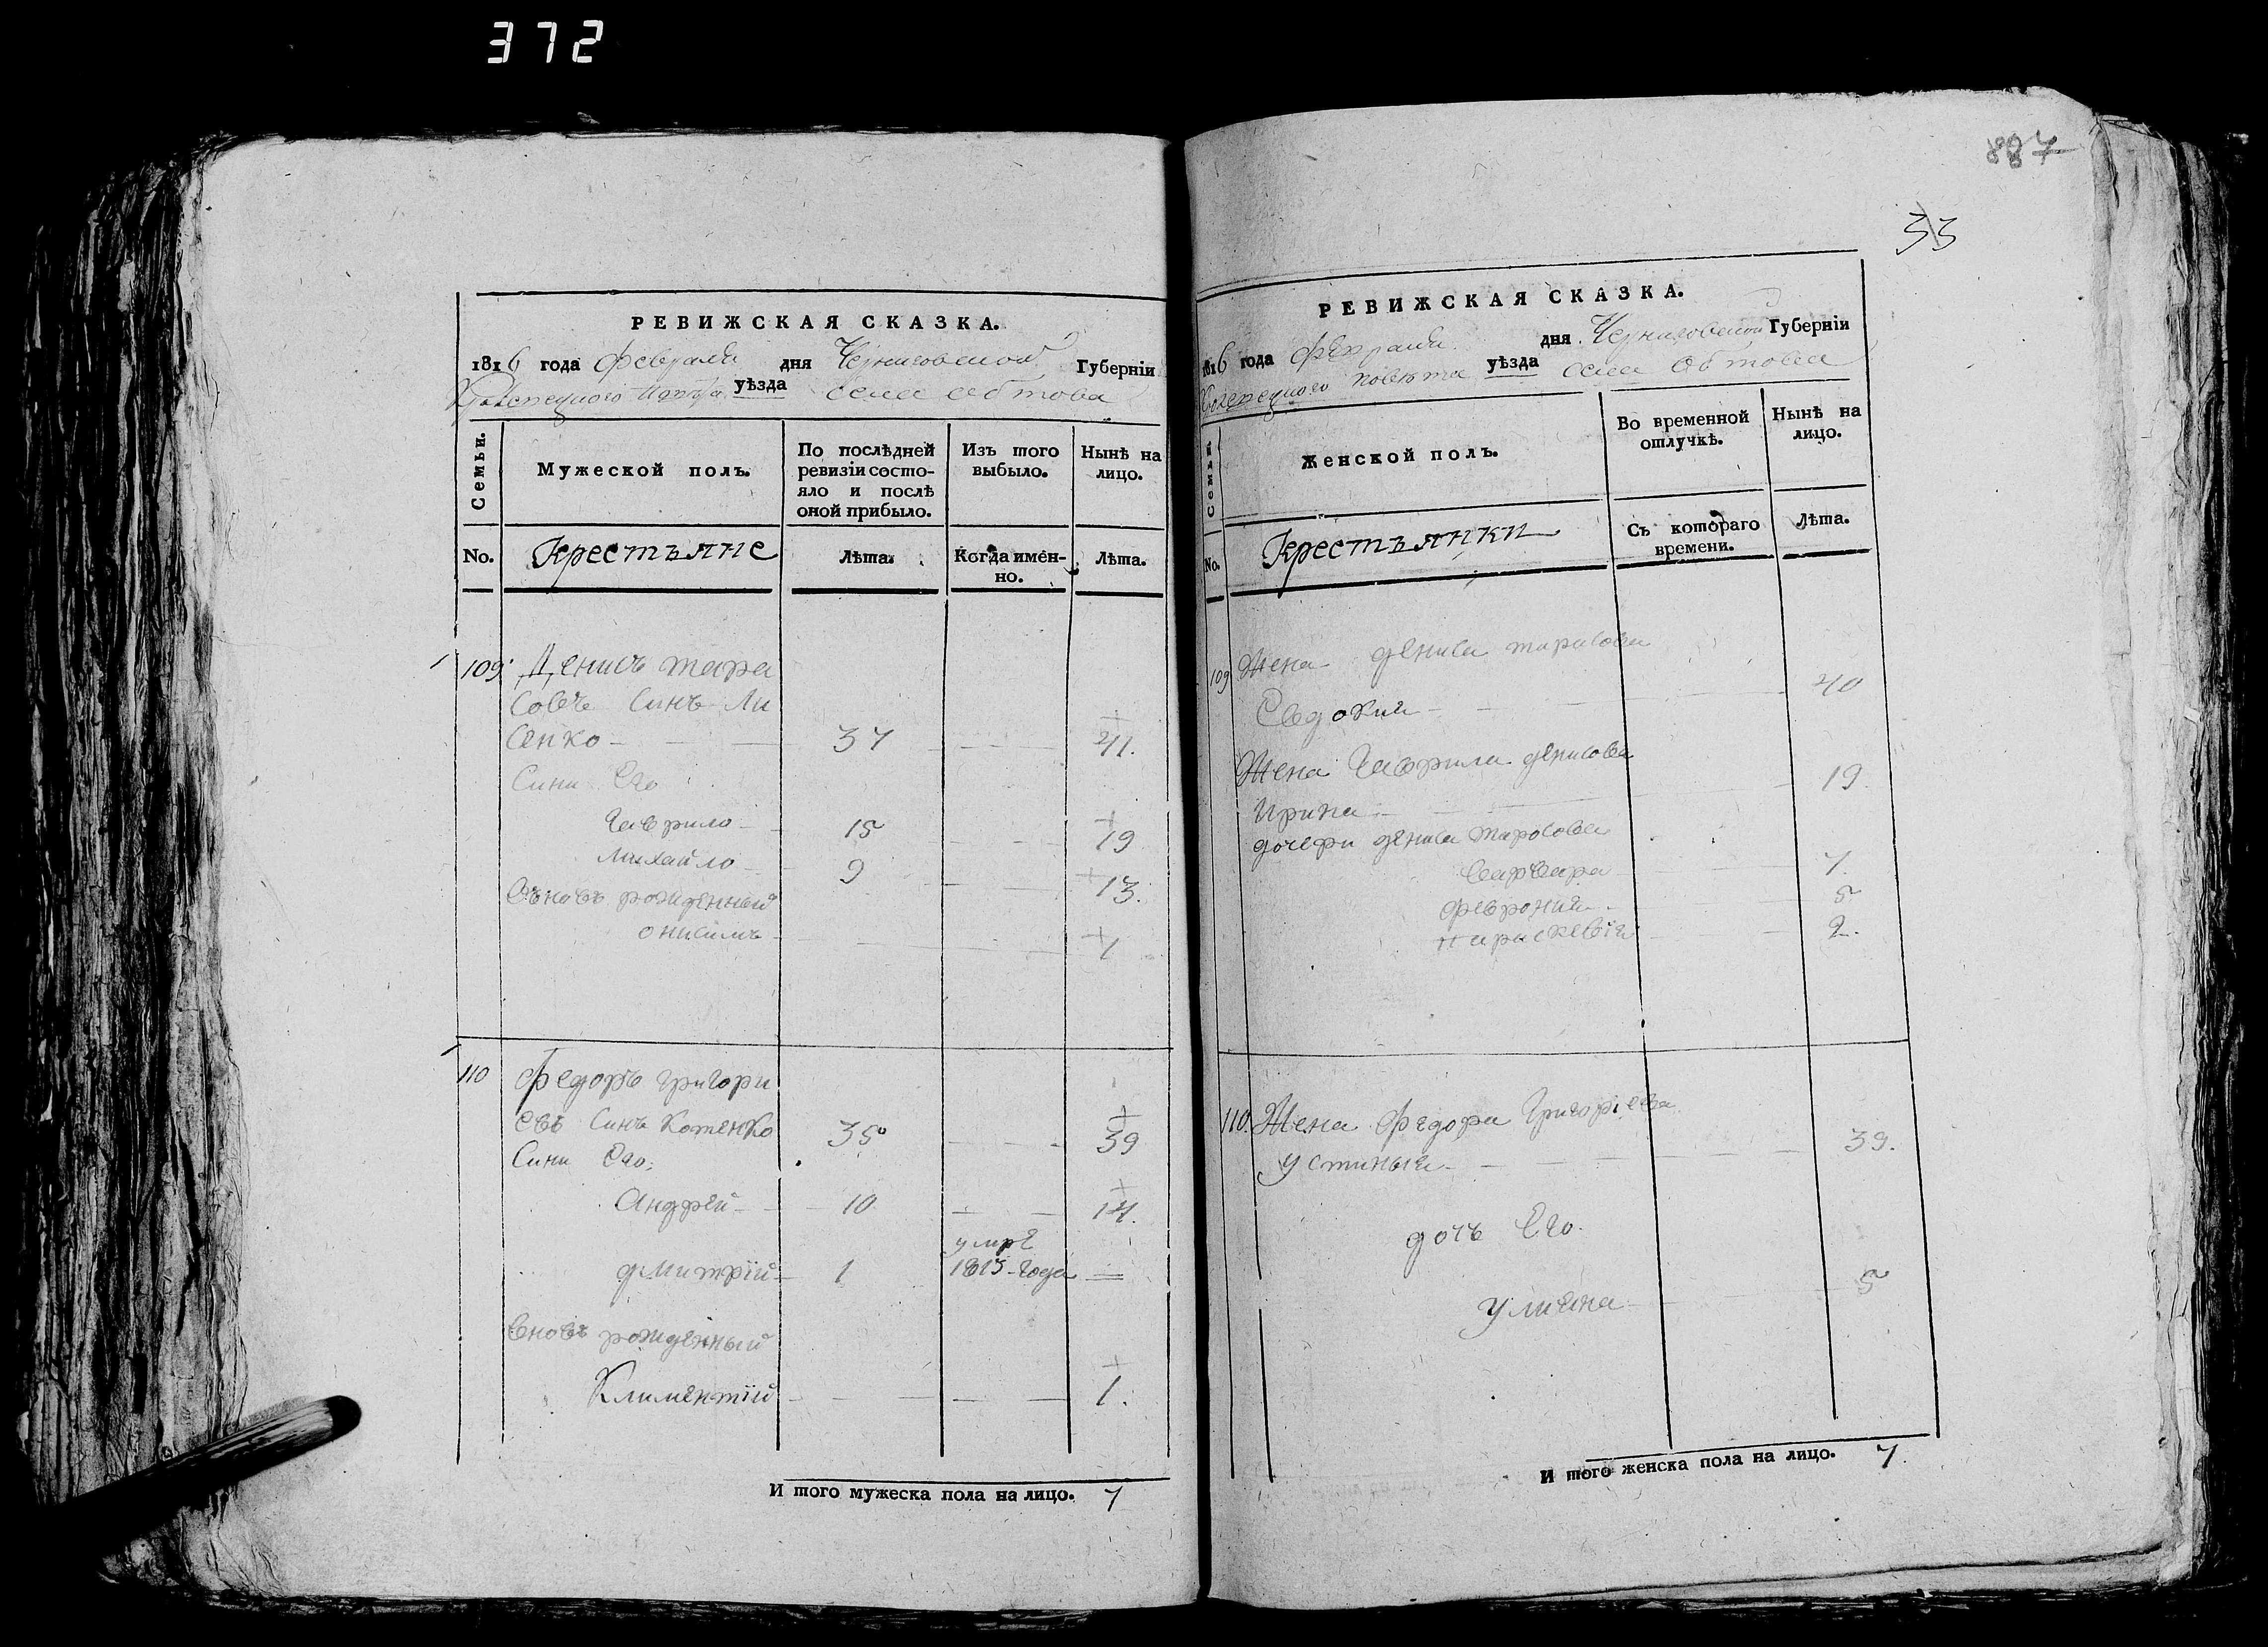 372
РЕВИЖСКАЯ СКАЗКА.
1816 года февраля дня Черниговской Губерніи
уѣзда села Обтова
Семьи.
Мужеской полъ.
По послѣдней ревизіи состо-
яло и послѣ
оной прибыло.
Изъ того
выбыло.
Нынѣ на
лицо.
No.
Крестьяне
Лѣта.
Когда имен-
но.
Лѣта.
109 Денисъ Тара
совъ синъ Ли
сенко 37 41.
Сини Его
Гаврило 15 19
Михайло 9 13.
вновь рожденный
Онисимъ 1
110 Федоръ Григори
евъ синъ Котенко 35 39
Сини Его:
Андрей 10 14.
умре
Дмитрій 1 1815 года
вновь рожденный
Климентій 1.
И того мужеска пола на лицо. 7
887
33
РЕВИЖСКАЯ СКАЗКА.
1816 года февраля дня Черниговской Губерніи
Кролевецкого повѣта уѣзда села Обтова
Семьи
Женской полъ.
Во временной
отлучкѣ.
Нынѣ на
лицо.
No.
Крестьянки
Съ котораго
времени.
Лѣта.
109 Жена Дениса Тарасова
Евдокия 40
Жена Гаврила Денисова
Ирина 19.
дочери Дениса Тарасова
Варвара 7.
Феврония 5
Параскевія 2.
110. Жена Федора Григоріева
Устинья 39.
дочь Его
Улияна 5
И того женска пола на лицо. 7.